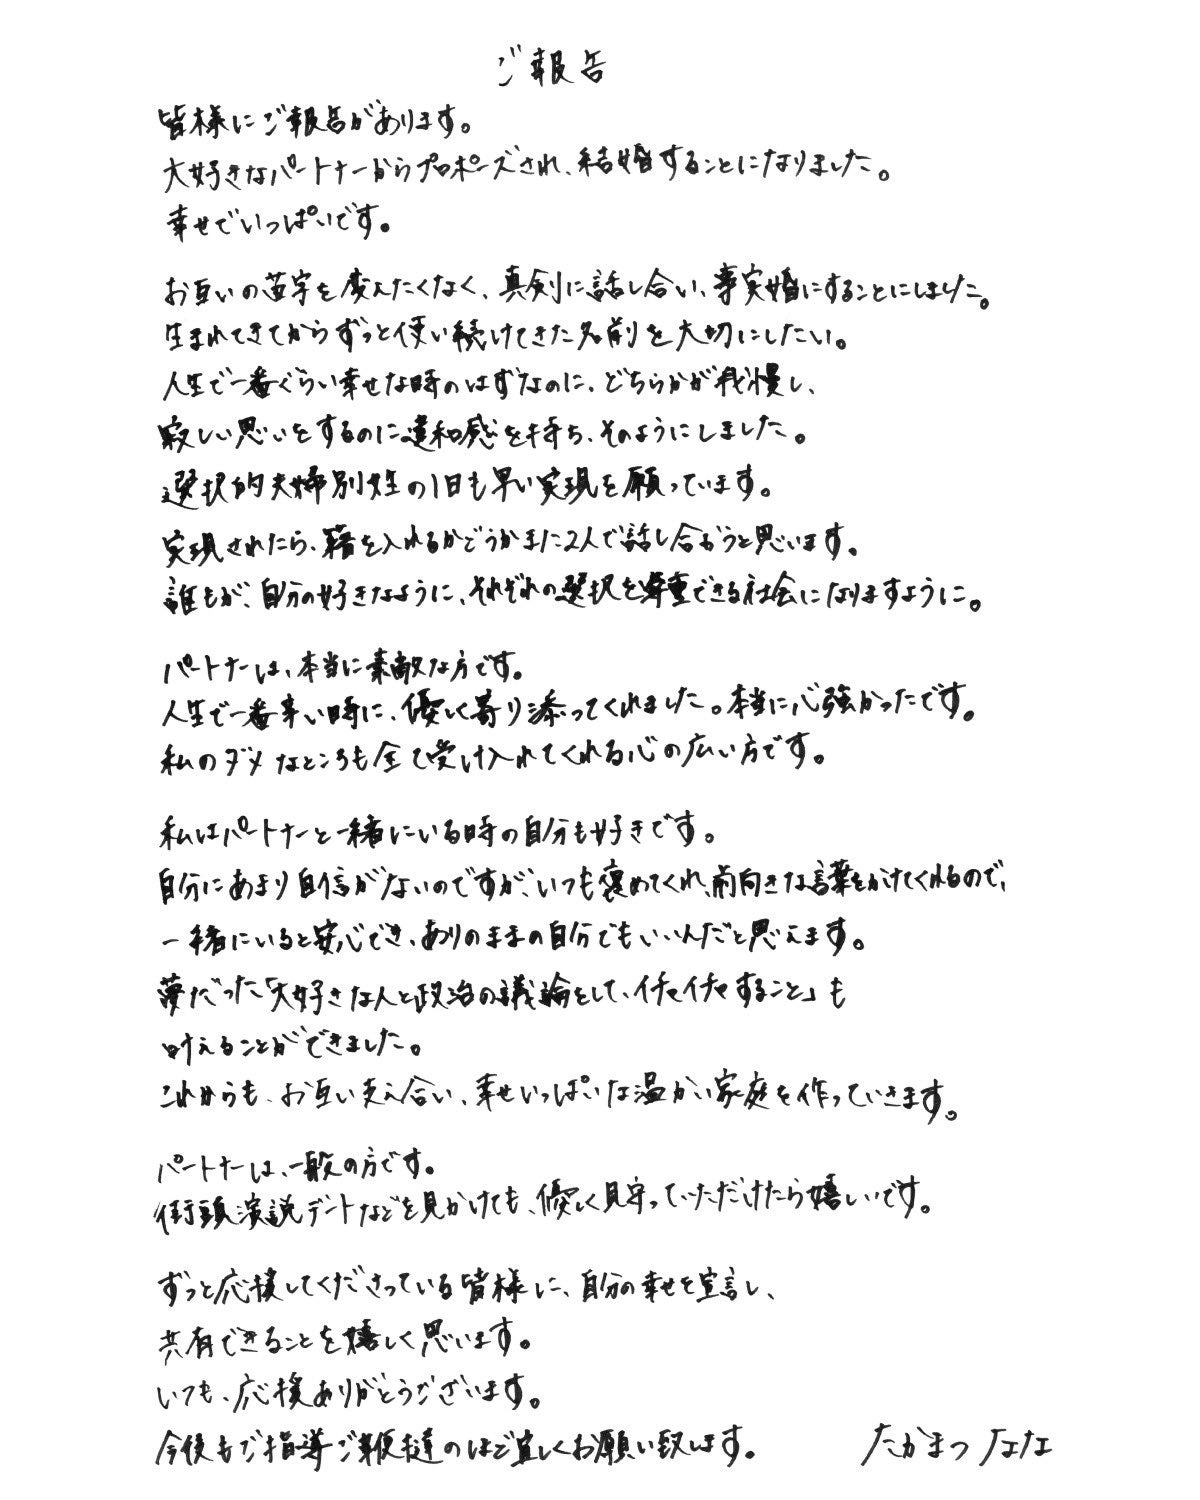 ご報告
皆様にご報告があります。
大好きなパートナーからプロポーズされ、結婚することになりました。
幸せでいっぱいです。
お互いの苗字を変えたくなく、真剣に話し合い、事実婚にすることにしました。
生まれてきてからずっと使い続けてきた名前を大切にしたい。
人生で一番ぐらい幸せな時のはずなのに、どちらかが我慢し、
寂しい思いをするのに違和感を持ち、そのようにしました。
選択的夫婦別姓の1日も早い実現を願っています。
実現されたら、籍を入れるかどうかまた2人で話し合おうと思います。
誰もが、自分の好きなように、それぞれの選択を尊重できる社会になりますように。
パートナーは、本当に素敵な方です。
人生で一番辛い時に、優しく寄り添ってくれました。本当に心強かったです。
私のダメなところも全て受け入れてくれる心の広い方です。
私はパートナーと一緒にいる時の自分も好きです。
自分にあまり自信がないのですが、いつも褒めてくれ、前向きな言葉をかけてくれるので、
一緒にいると安心でき、ありのままの自分でもいいんだと思えます。
夢だった「大好きな人と政治の議論をして、イチャイチャすること」も
叶えることができました。
これからも、お互い支え合い、幸せいっぱいな温かい家庭を作っていきます。
パートナーは、一般の方です。
街頭演説デートなどを見かけても、優しく見守っていただけたら嬉しいです。
ずっと応援してくださっている皆様に、自分の幸せを宣言し、
共有できることを嬉しく思います。
いつも、応援ありがとうございます。
今後もご指導ご鞭撻のほど宜しくお願い致します。 たかまつなな